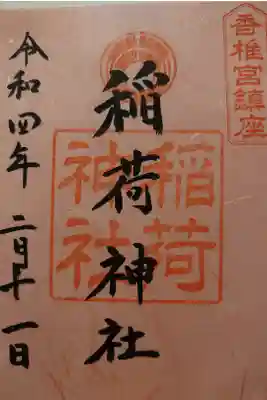 香椎宮鎮座
稲荷神社
稲荷
神社
令和四年 二月十一日